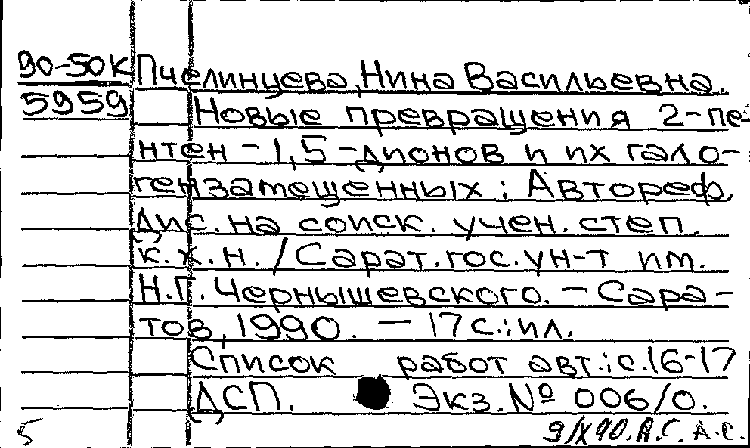 90-50К Пчелинцева, Нина Васильевна.
5959 Новые превращения 2-пе-
нтен-1,5-дионов и их гало-
гензамещенных : Автореф.
дис. на соиск. учен. степ.
к.х.н. / Сарат. гос. ун-т им.
Н.Г. Чернышевского. - Сара-
тов, 1990. - 17 с.: ил.
Список работ авт.: с.16-17
ДСП. Экз. № 006/0.
5 9/IX 90. А.С. А.С.